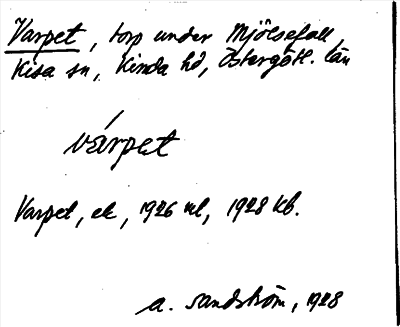 Varpet, torp under Mjölsefall,
Kisa sn, Kinda hd, Östergötl. län
várpet
Varpet, ek, 1926 ul, 1928 kb.
A. Sandström, 1928